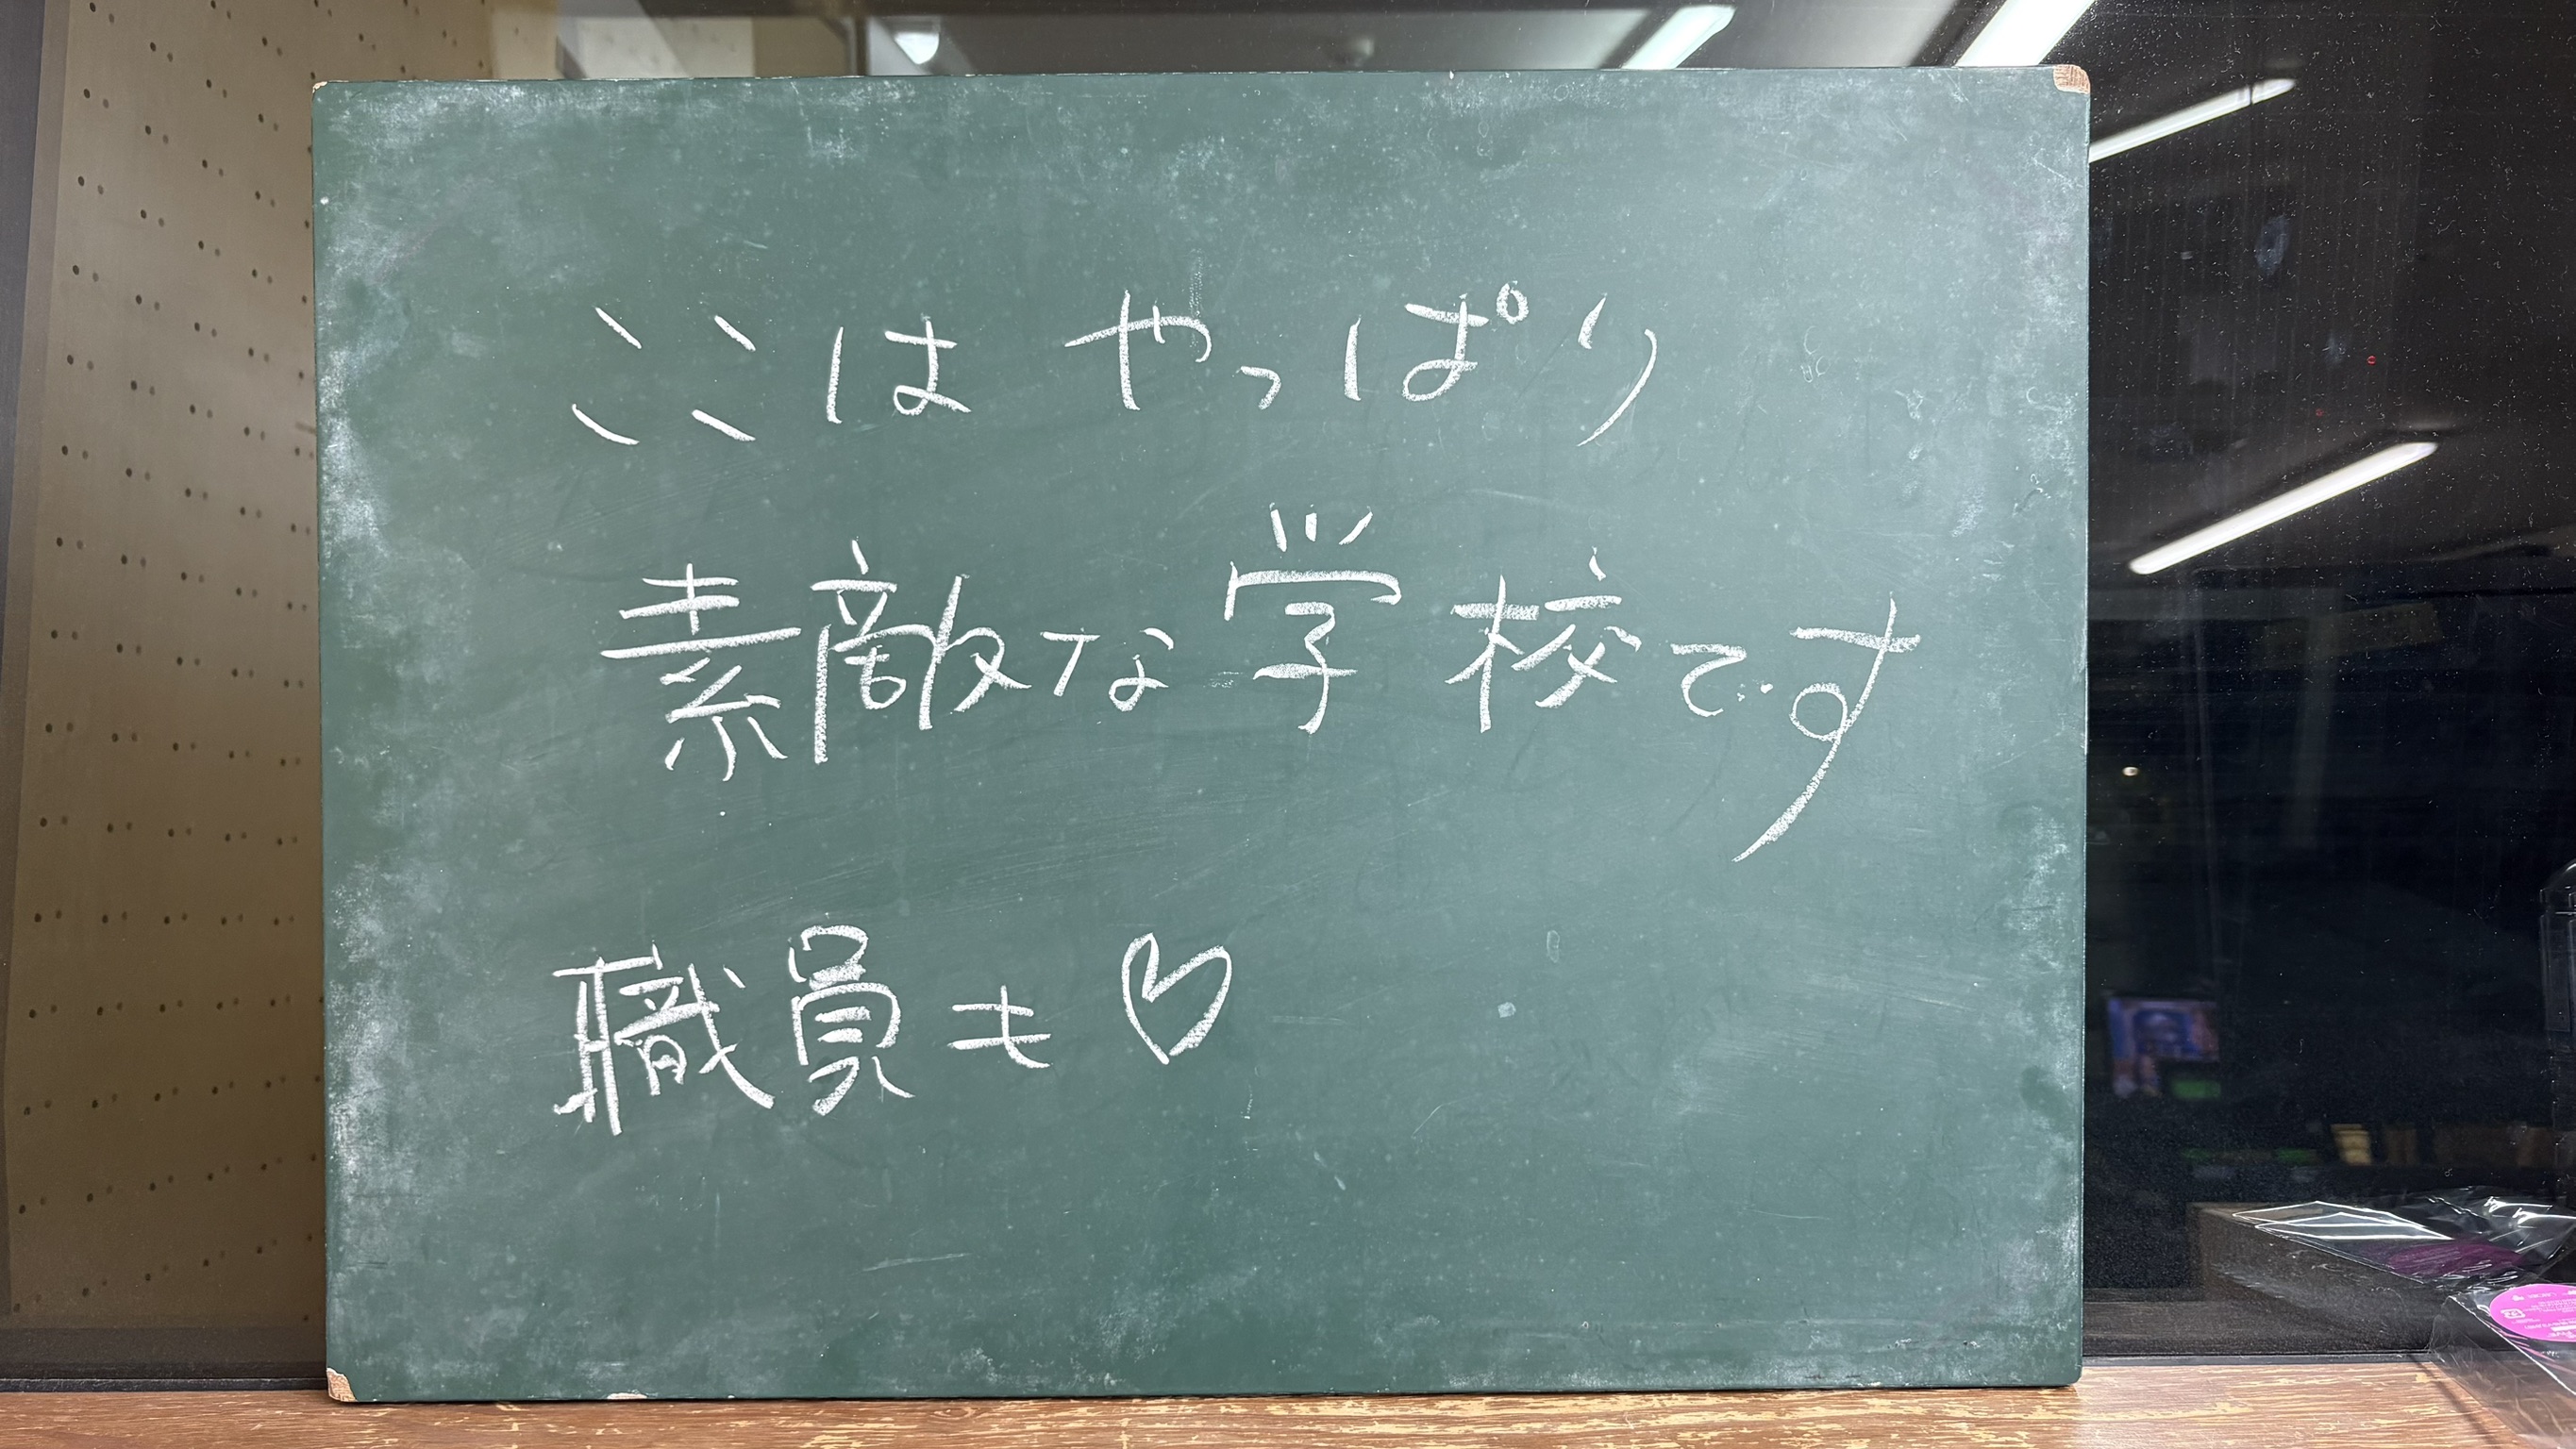 ここは やっぱり
素敵な学校です
職員も♡